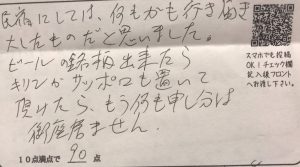 民宿にしては、何もかも行き届き
大したものだと思いました。
ビールの銘柄出来たら
キリンかサッポロも置いて
頂けたら、もう何も申し分は
御座居ません。
10点満点で 90 点
スマホでも投稿
OK!チェック欄
記入後フロント
へお渡し下さい。